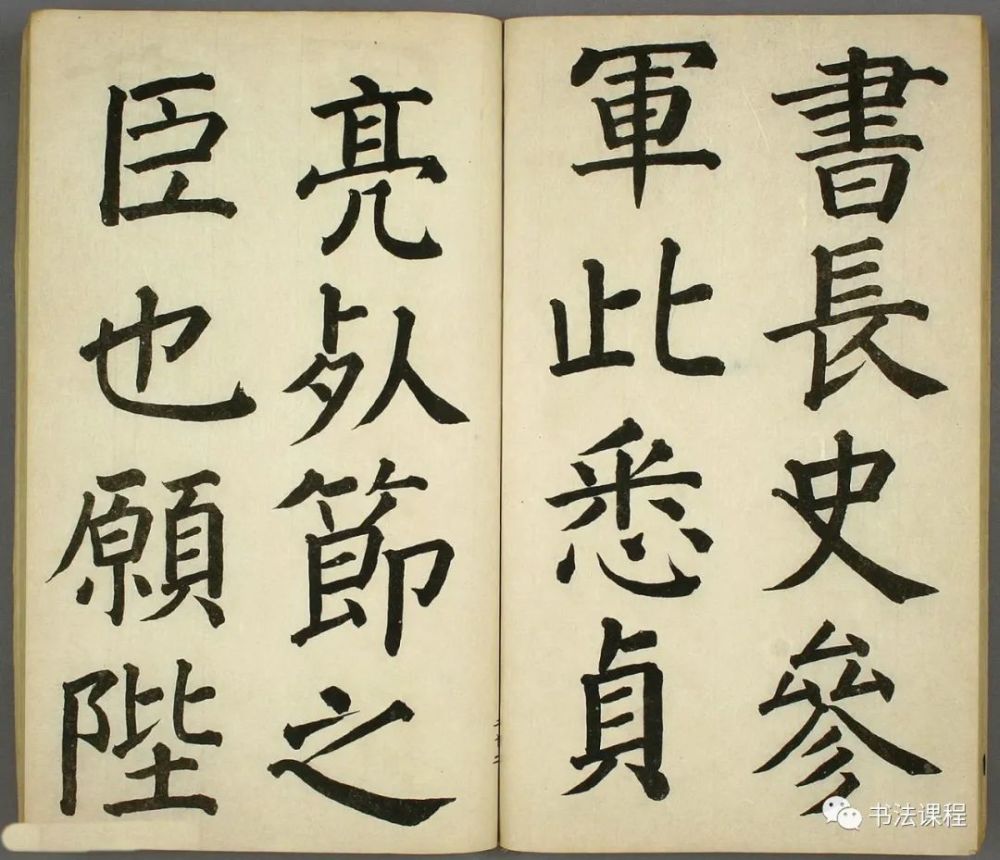 書長史參
軍此悉貞
亮死節之
臣也願陛
书法课程